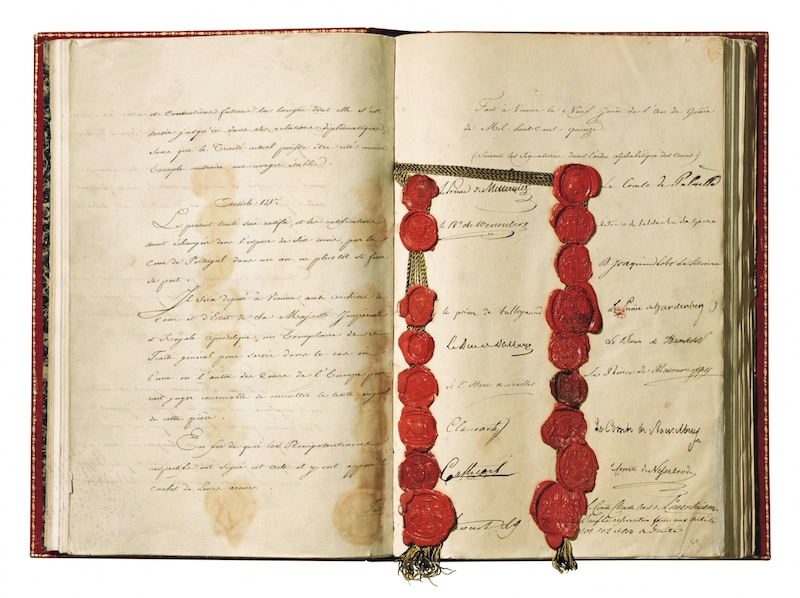 et Conventions futures la langue dont elle s'est
servie jusqu'ici dans ses relations diplomatiques,
sans que le Traité actuel puisse être cité comme
Exemple contraire aux usages établis.
Article 121.
Le présent traité sera ratifié, et les ratifications
seront échangées dans l'espace de Six mois, par la
Cour de Portugal dans un an ou plus tôt si faire
se peut.
Il sera déposé à Vienne aux archives de
Cour et d'Etat de Sa Majesté Impériale
et Royale apostolique, un Exemplaire de ce
Traité général pour servir dans le cas où
l'une ou l'autre des Cours de l'Europe pour-
rait juger convenable de consulter le texte original
de cette pièce.
En foi de quoi les Plénipotentiaires
respectifs ont signé cet acte et y ont apposé le
cachet de Leurs armes.
Fait à Vienne le Neuf Juin de l'an de Grâce
de Mil huit cent quinze.
(Suivent les Signatures dans l'ordre alphabétique des cours)
Le Prince de Metternich
le Bn de Wessenberg
le prince de talleyrand
Le Duc de Dalberg
le Cte Alexis de Noailles
Clancarty
Cathcart
Stewart LG
Le Comte de Palmella
Antonio de Saldanha da Gama
D Joaquim Lobo da Silveira
Le Prince de Hardenberg
Le Baron de Humboldt
Le Prince de Rasoumoffsky
Le Comte de Stackelberg
Le Comte de Nesselrode
Le Comte Charles Axel de Löwenhielm
Sauf la réservation faite aux articles
101. 102 et 104 du traité